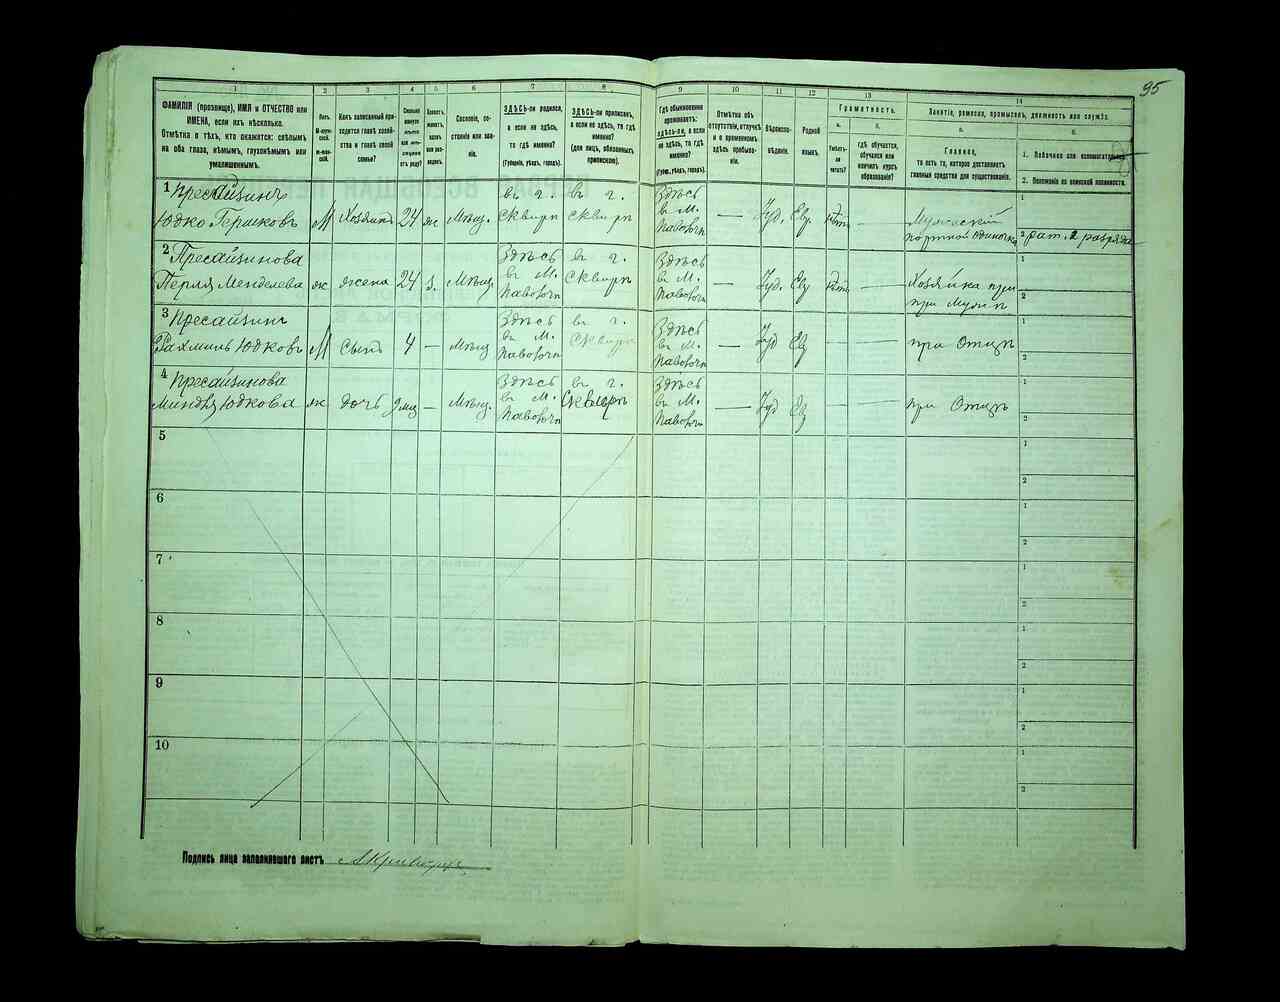 95
1 2 3 4 5 6 7 8 9 10 11 12 13 14
ФАМИЛІЯ (прозвище), ИМЯ и ОТЧЕСТВО или
ИМЕНА, если ихъ нѣсколько.
Отмѣтка о тѣхъ, кто окажется: слѣпымъ
на оба глаза, нѣмымъ, глухонѣмымъ или
умалишеннымъ.
Полъ.
Какъ записанный при-
ходится главѣ хозяй-
ства и главѣ своей
семьи?
Сословіе, со-
стояніе или зва-
ніе.
ЗДѢСЬ-ли родился,
а если не здѣсь,
то гдѣ именно?
(Губернія, уѣздъ, городъ).
ЗДѢСЬ-ли приписанъ,
а если не здѣсь, то гдѣ
именно?
(для лицъ, обязанныхъ
припискою).
Гдѣ обыкновенно
проживаетъ:
здѣсь-ли, а если
не здѣсь, то гдѣ
именно?
(Губер., уѣздъ, городъ).
Отмѣтка объ
отсутствіи, отлучкѣ
и о временномъ
здѣсь пребыва-
ніи.
Вѣроиспо-
вѣданіе.
Родной
языкъ.
Грамотность.
а.
Умѣетъ-ли
читать?
б.
гдѣ обучается,
обучался или
кончилъ курсъ
образованія?
Занятіе, ремесло, промыселъ, должность или служба.
а.
Главное,
то есть то, которое доставляетъ
главныя средства для существованія.
б.
1. Побочное или вспомогательное.
2. Положеніе по воинской повинности.
1 Пресайзинъ
Юдко Гершковъ М Хозяинъ 24 ж Мѣщ.
въ г.
Сквирѣ
въ г.
Сквирѣ
Здѣсь
въ М.
— Іуд. Евр. нѣтъ —
Мужской
портной одиночка
1
2 рат. 2 разряда
2 Пресайзинова
Перля Менделева ж жена 24 з. Мѣщ.
Здѣсь
въ М.
въ г.
Сквирѣ
Здѣсь
въ М.
— Іуд. Евр нѣтъ —
Хозяйка при
при Мужѣ
1
2
3 Пресайзинъ
Рахмиль Юдковъ М Сынъ 4 — Мѣщ
Здѣсь
въ М.
въ г.
Сквирѣ
Здѣсь
въ М.
— Іуд Евр — —
при Отцѣ
1
2
4 Пресайзинова
Миндля Юдкова ж дочь 9 мц — Мѣщ.
Здѣсь
въ М.
въ г.
Сквирѣ
Здѣсь
въ М.
— Іуд Евр — —
при Отцѣ
1
2
5
1
2
6
1
2
7
1
2
8
1
2
9
1
2
10
1
2
Подпись лица заполнявшаго листъ